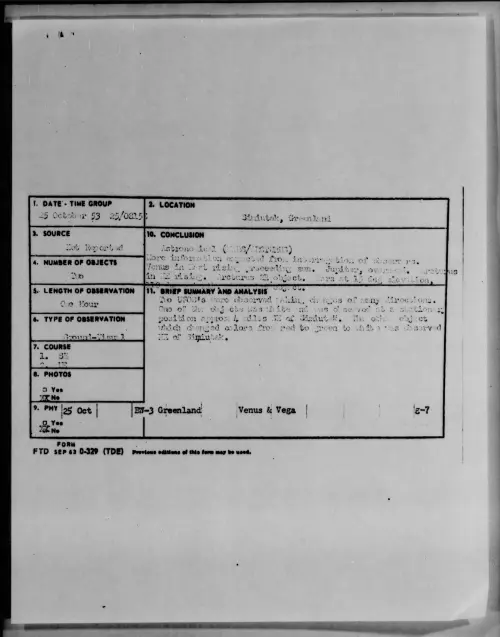 1. DATE - TIME GROUP
25 October 53 25/0815
2. LOCATION
Simiutak, Greenland
3. SOURCE
Not Reported
10. CONCLUSION
Astronomical
More information expected from interrogation of observers.
Venus in East rising preceding sun. Jupiter, overhead. Arcturus
in NE rising. Arcturus object. Mars at 15 deg elevation,
4. NUMBER OF OBJECTS
Two
5. LENGTH OF OBSERVATION
One Hour
11. BRIEF SUMMARY AND ANALYSIS
Two UFOB's were observed making changes of many directions.
One of the objects was white and was observed at a stationary
position approx 4 miles of Simiutak. The other object
which changed colors from red to green to white was observed
NE of Simiutak.
6. TYPE OF OBSERVATION
Ground-Visual
7. COURSE
1. SE
2. NE
8. PHOTOS
□ Yes
No
9. PHY 25 Oct BW-3 Greenland Venus & Vega g-7
□ Yes
No
FORM
FTD SEP 63 0-329 (TDE) Previous editions of this form may be used.